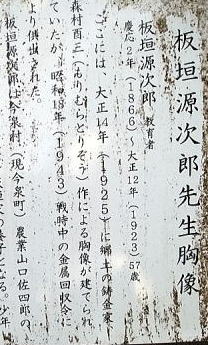 板垣源次郎先生胸像
板垣源次郎 教育者
慶応2年(1866)~大正12年(1923)57歳
ここには、大正14年(1925)に郷土の鋳金家
森村酉三(もりむらとりぞう)作による胸像が建てられ
ていたが、昭和18年(1943)戦時中の金属回収令に
より供出された。
板垣源次郎は今泉村(現今泉町)農業山口佐四郎の